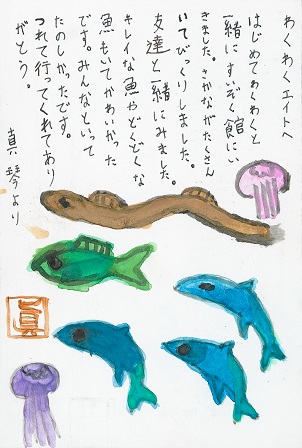 わくわくエイトへ
はじめてわくわくと
一緒にすいぞく館にい
きました。さかながたくさん
いてびっくりしました。
友達と一緒にみました。
キレイな魚やどくどくな
魚もいてかわいかった
です。みんなといって
たのしかったです。
つれて行ってくれてあり
がとう。
真琴より
真